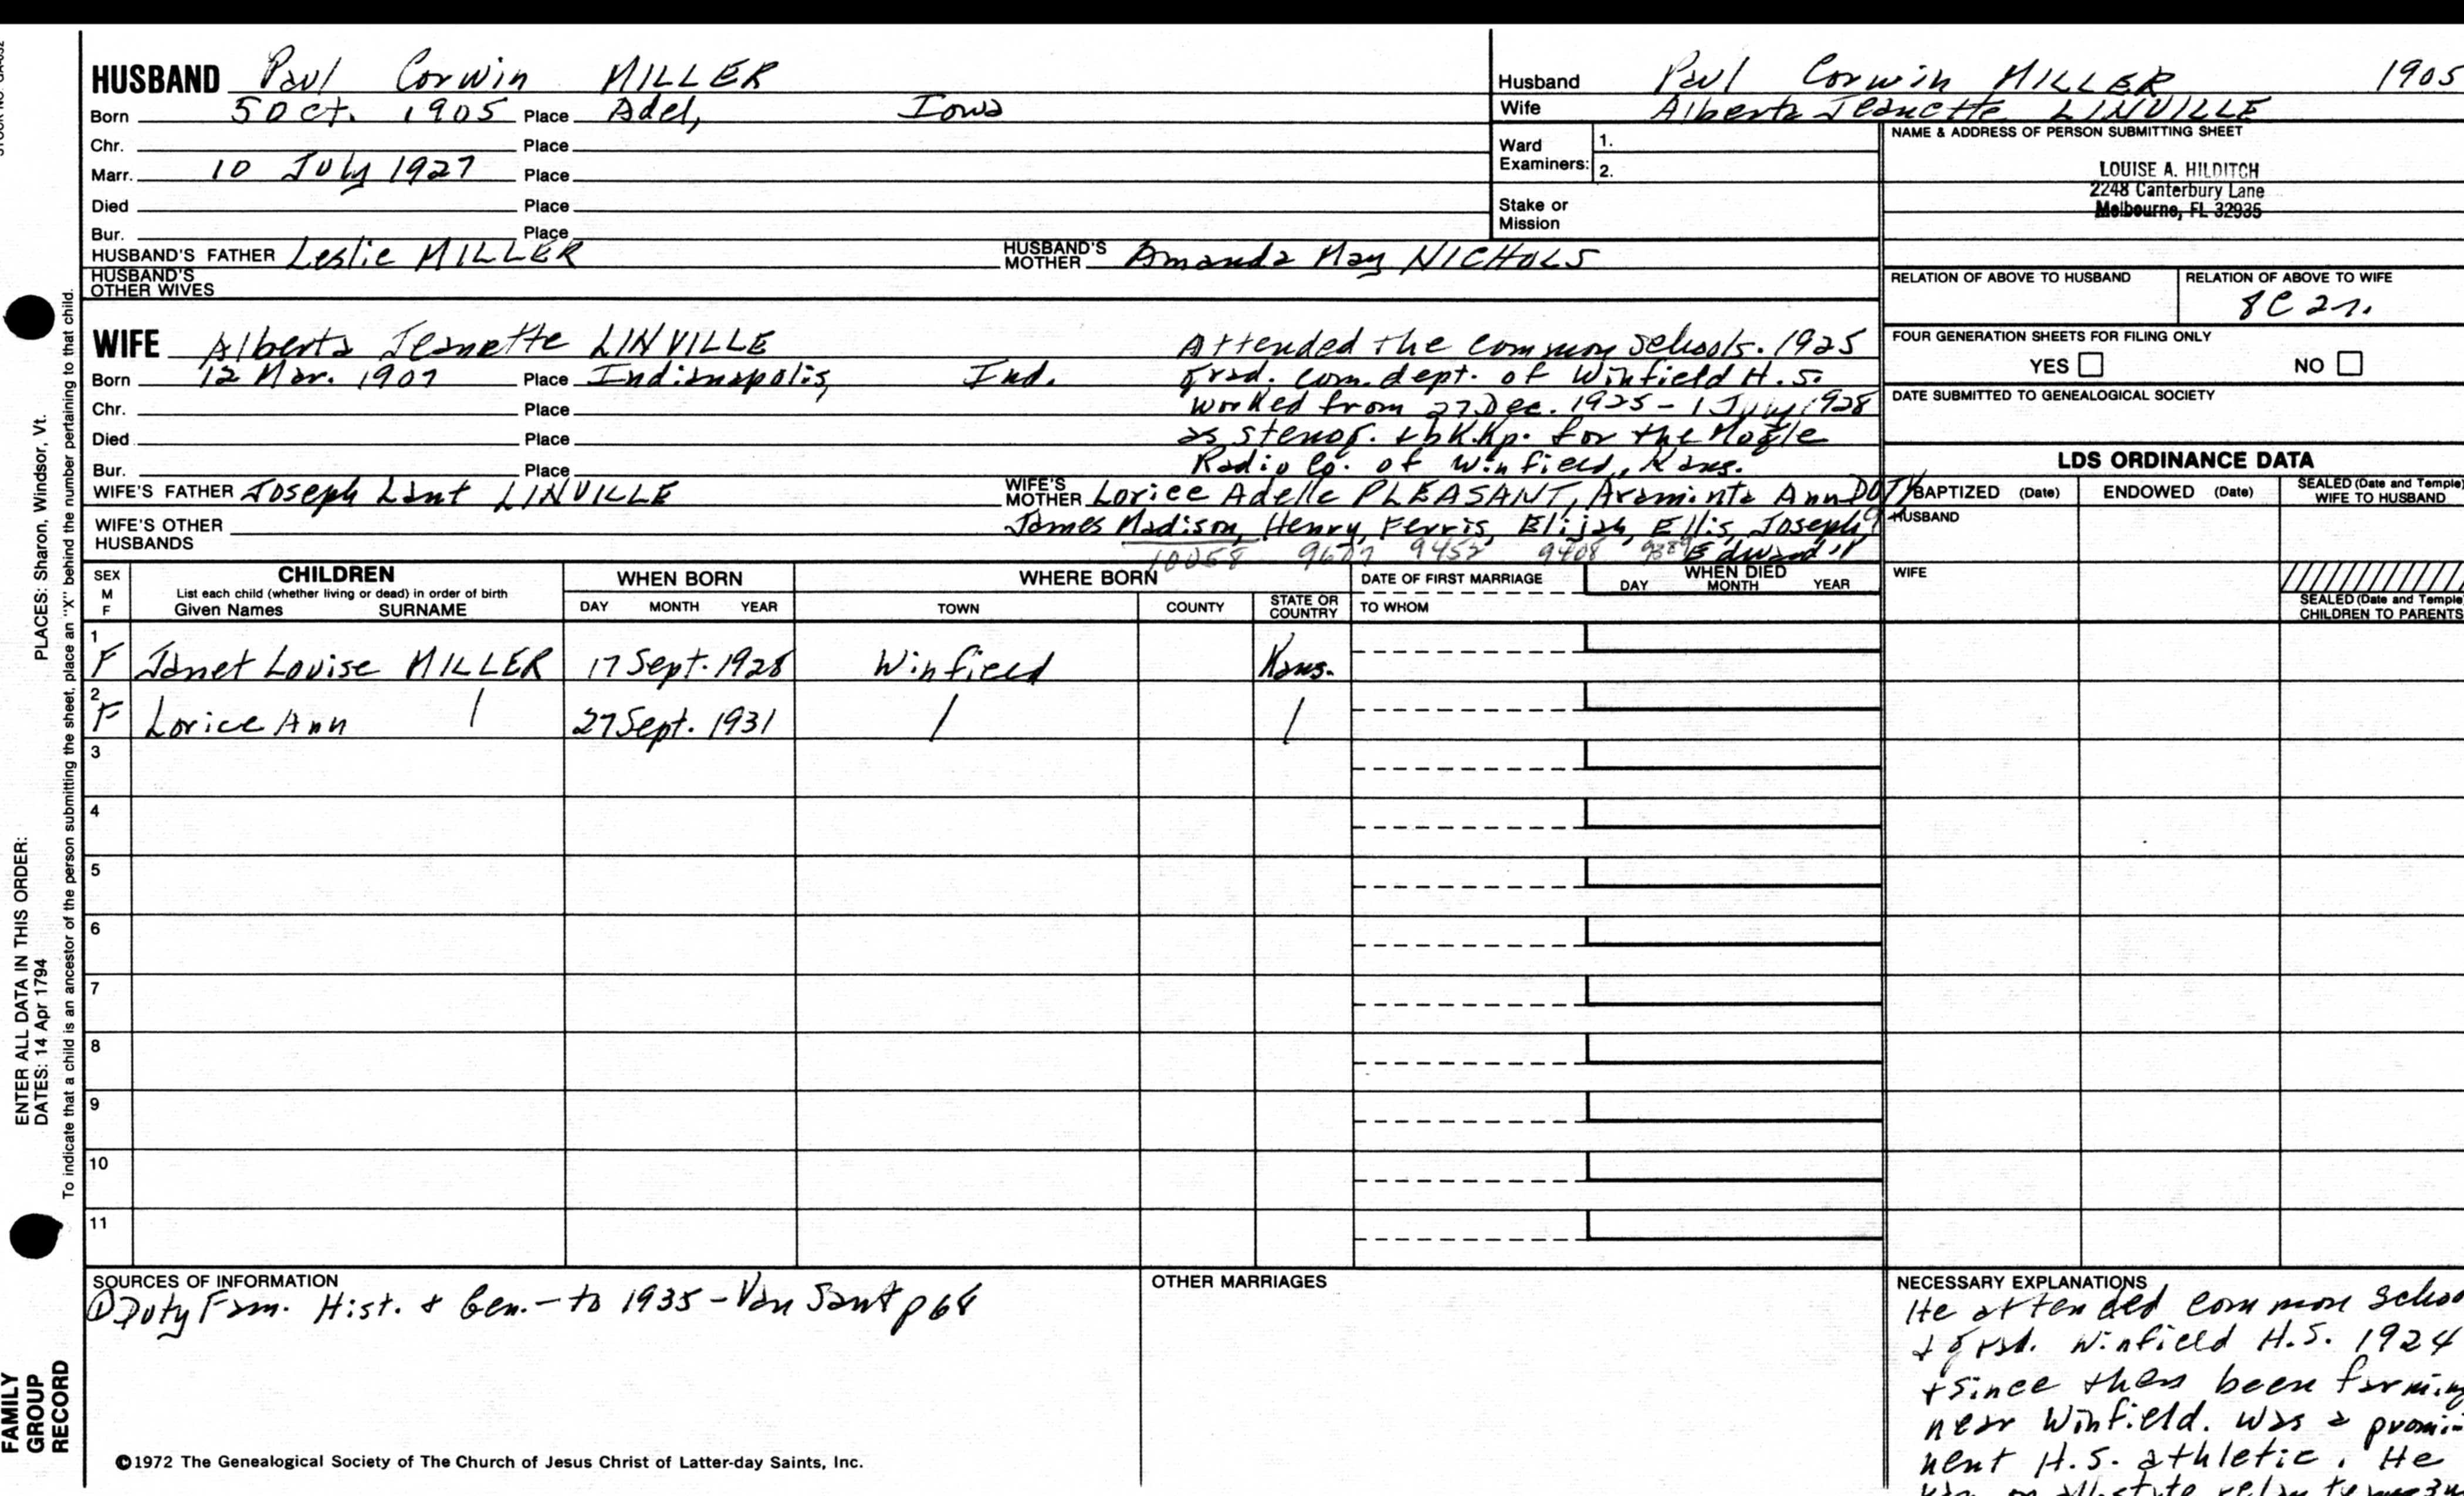 HUSBAND Paul Corwin MILLER
Born 5 Oct. 1905 Place Adel, Iowa
Chr. Place
Marr. 10 July 1927 Place
Died Place
Bur. Place
HUSBAND'S FATHER Leslie MILLER HUSBAND'S MOTHER Amanda May NICHOLS
HUSBAND'S OTHER WIVES
Husband Paul Corwin MILLER 1905
Wife Alberta Jeanette LINVILLE
Ward Examiners: 1.
2.
Stake or Mission
NAME & ADDRESS OF PERSON SUBMITTING SHEET
LOUISE A. HILDITCH
2248 Canterbury Lane
Melbourne, FL 32935
RELATION OF ABOVE TO HUSBAND RELATION OF ABOVE TO WIFE
8C 2r.
FOUR GENERATION SHEETS FOR FILING ONLY
YES NO
DATE SUBMITTED TO GENEALOGICAL SOCIETY
WIFE Alberta Jeanette LINVILLE
Born 12 Mar. 1907 Place Indianapolis, Ind.
Chr. Place
Died Place
Bur. Place
Attended the common schools. 1925
grad. com. dept. of Winfield H.S.
worked from 27 Dec. 1925 - 1 July 1928
as stenog. & bk.kp. for the
Radio Co. of Winfield, Kans.
WIFE'S FATHER Joseph Lant LINVILLE WIFE'S MOTHER Lorice Adelle PLEASANT, Araminta Ann DOTY
WIFE'S OTHER HUSBANDS
James Madison, Henry, Ferris, Elijah, Ellis, Joseph,
10058 9452 9408 9389 Edward
LDS ORDINANCE DATA
BAPTIZED (Date) ENDOWED (Date) SEALED (Date and Temple) WIFE TO HUSBAND
HUSBAND
WIFE
SEALED (Date and Temple) CHILDREN TO PARENTS
SEX M F CHILDREN List each child (whether living or dead) in order of birth Given Names SURNAME WHEN BORN DAY MONTH YEAR WHERE BORN TOWN COUNTY STATE OR COUNTRY DATE OF FIRST MARRIAGE TO WHOM WHEN DIED DAY MONTH YEAR
1 F Janet Louise MILLER 17 Sept. 1928 Winfield Kans.
2 F Lorice Ann / 27 Sept. 1931 / /
3
4
5
6
7
8
9
10
11
SOURCES OF INFORMATION
① Doty Fam. Hist. & Gen. - to 1935 - Van Sant p 68
OTHER MARRIAGES
NECESSARY EXPLANATIONS
He attended common
& grad. Winfield H.S. 1924
& since then been farming
near Winfield. Was a promi-
nent H.S. athletic. He
©1972 The Genealogical Society of The Church of Jesus Christ of Latter-day Saints, Inc.
PLACES: Sharon, Windsor, Vt.
ENTER ALL DATA IN THIS ORDER:
DATES: 14 Apr 1794
To indicate that a child is an ancestor of the person submitting the sheet, place an "X" behind the number pertaining to that child.
FAMILY
GROUP
RECORD